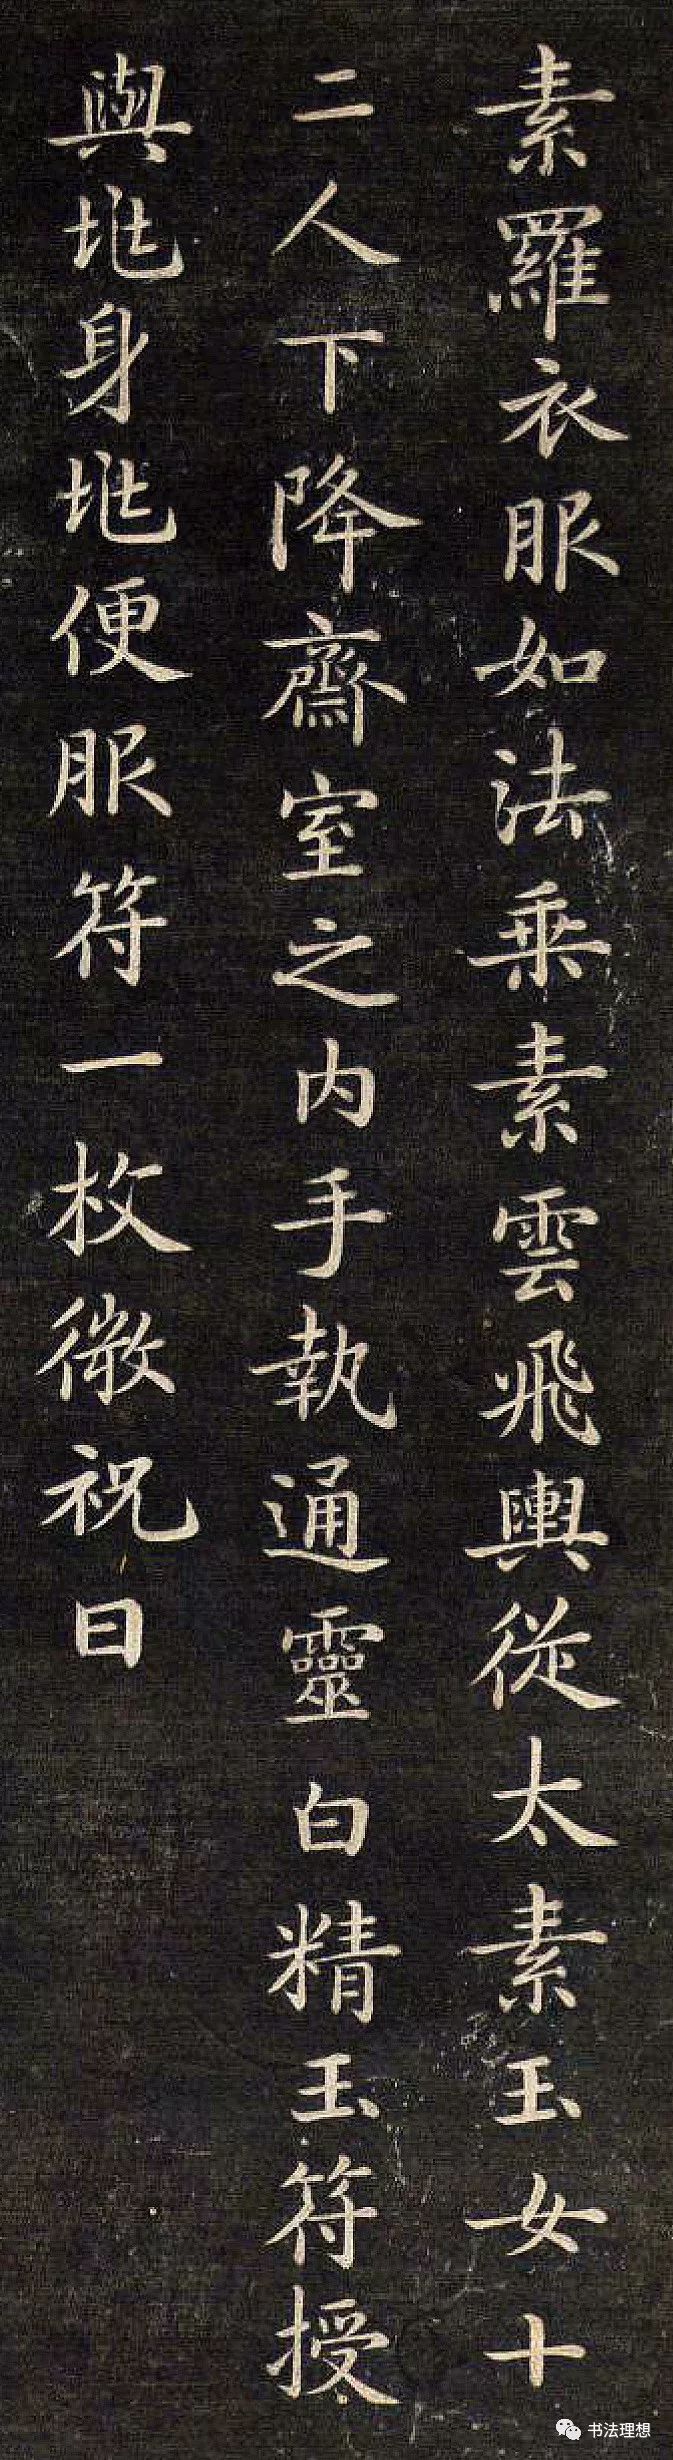 素羅衣服如法乗素雲飛輿從太素玉女十
二人下降齋室之内手執通靈白精玉符授
與兆身兆便服符一枚微祝曰
书法理想